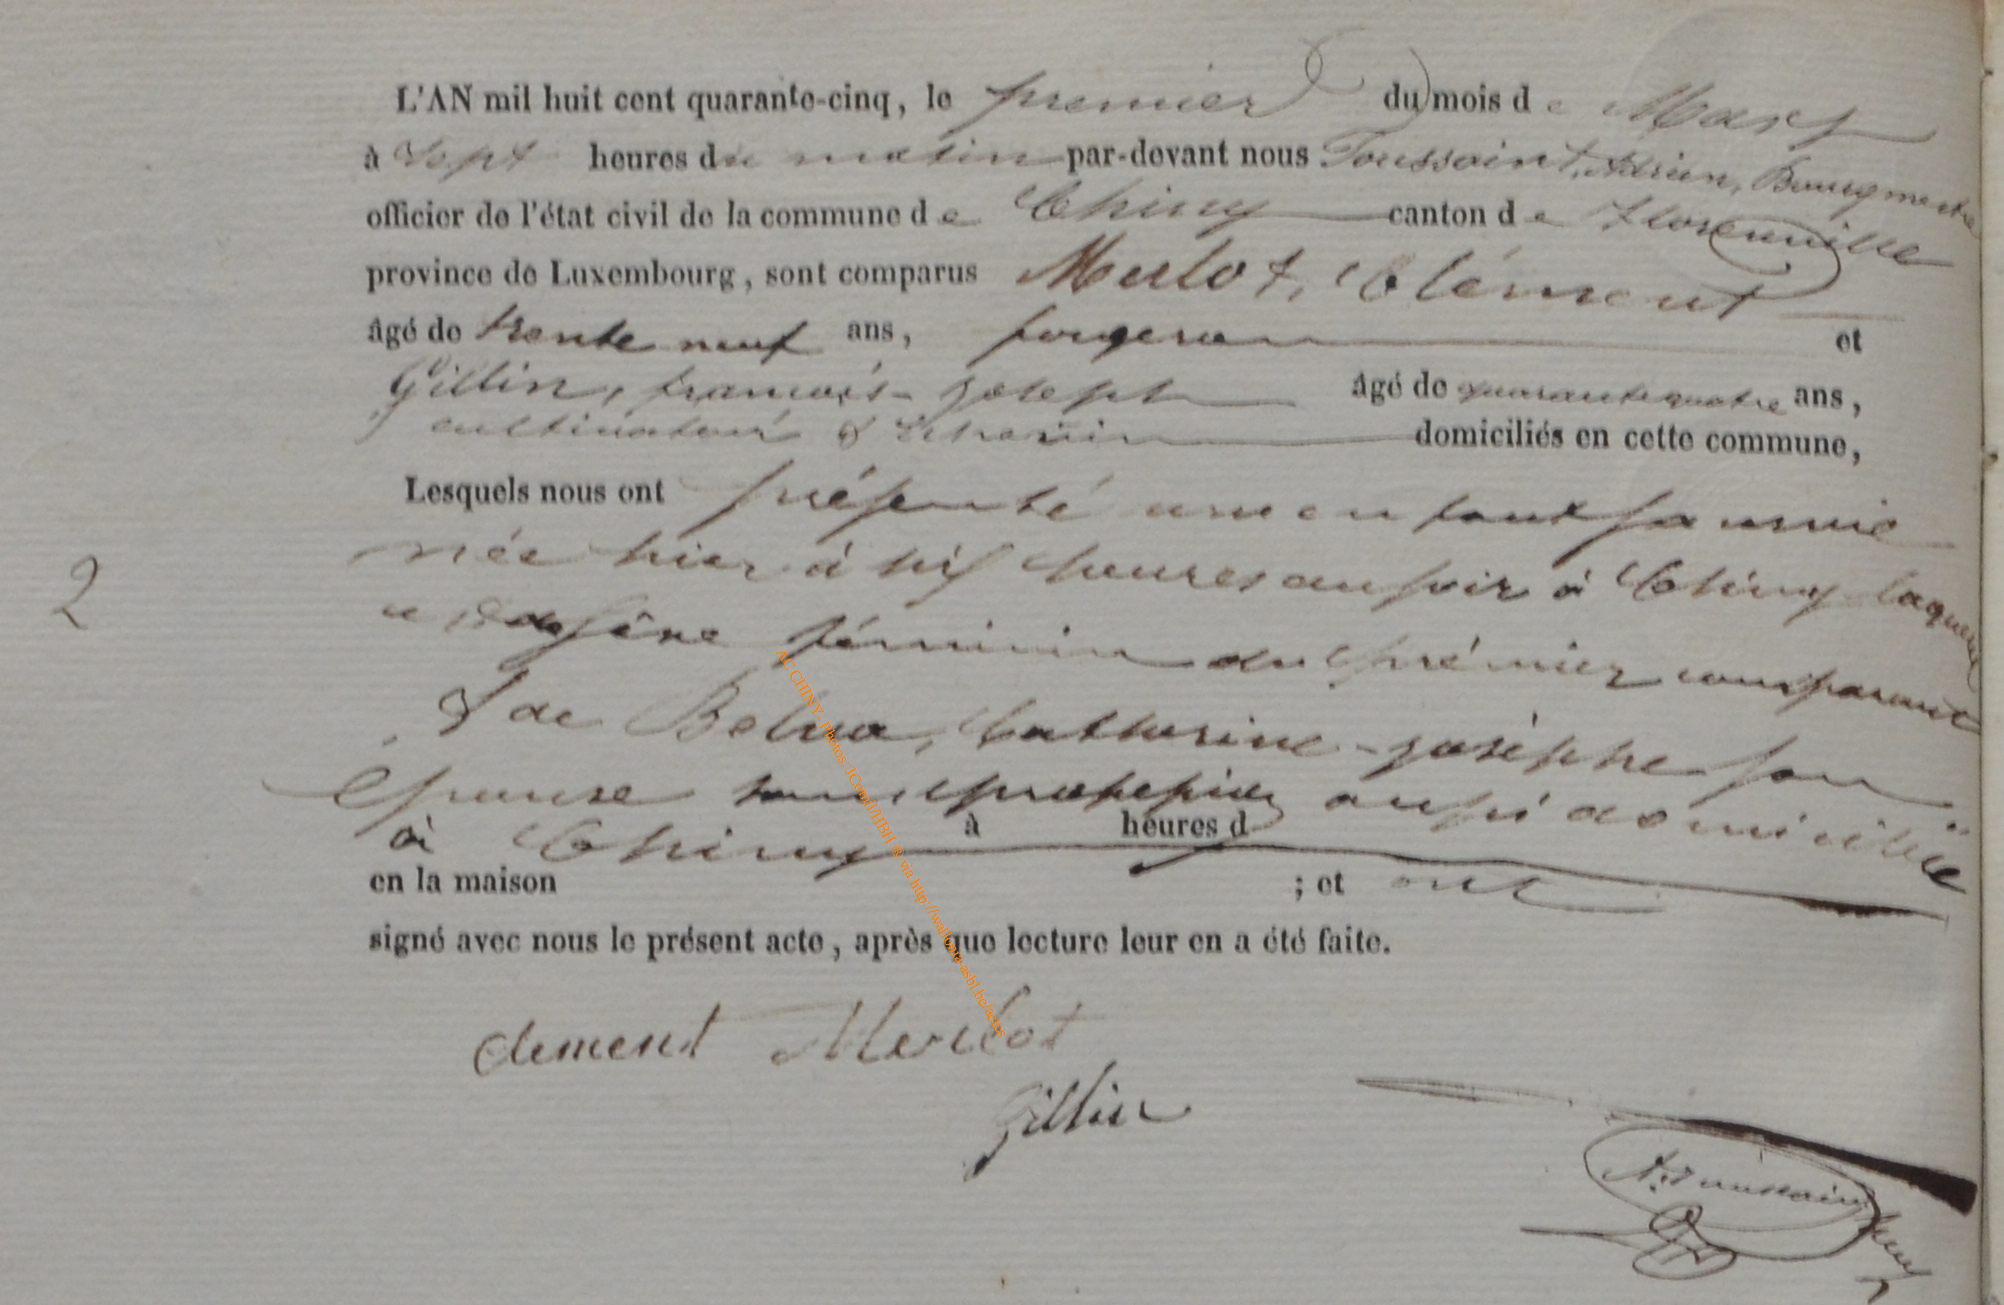 L'AN mil huit cent quarante-cinq, le premier du mois de Mars
à Sept heures du matin par-devant nous Toussaint, Adrien, Bourgmestre
officier de l'état civil de la commune de Chiny canton de Florenville
province de Luxembourg, sont comparus Merlot, Clément
âgé de trente neuf ans, forgeron et
Gillin, françois-joseph âgé de quarante quatre ans,
cultivateur & domiciliés en cette commune,
Lesquels nous ont présenté un enfant
née hier à six heures au soir à Chiny laquelle
féminin du prémier comparant
& de Catherine-joséphe son
épouse sans profession aussi domiciliée
à Chiny à heures d
en la maison ; et ont
signé avec nous le présent acte, après que lecture leur en a été faite.
2
clement Merlot
Gillin
A. Toussaint
AC CHINY - Photos